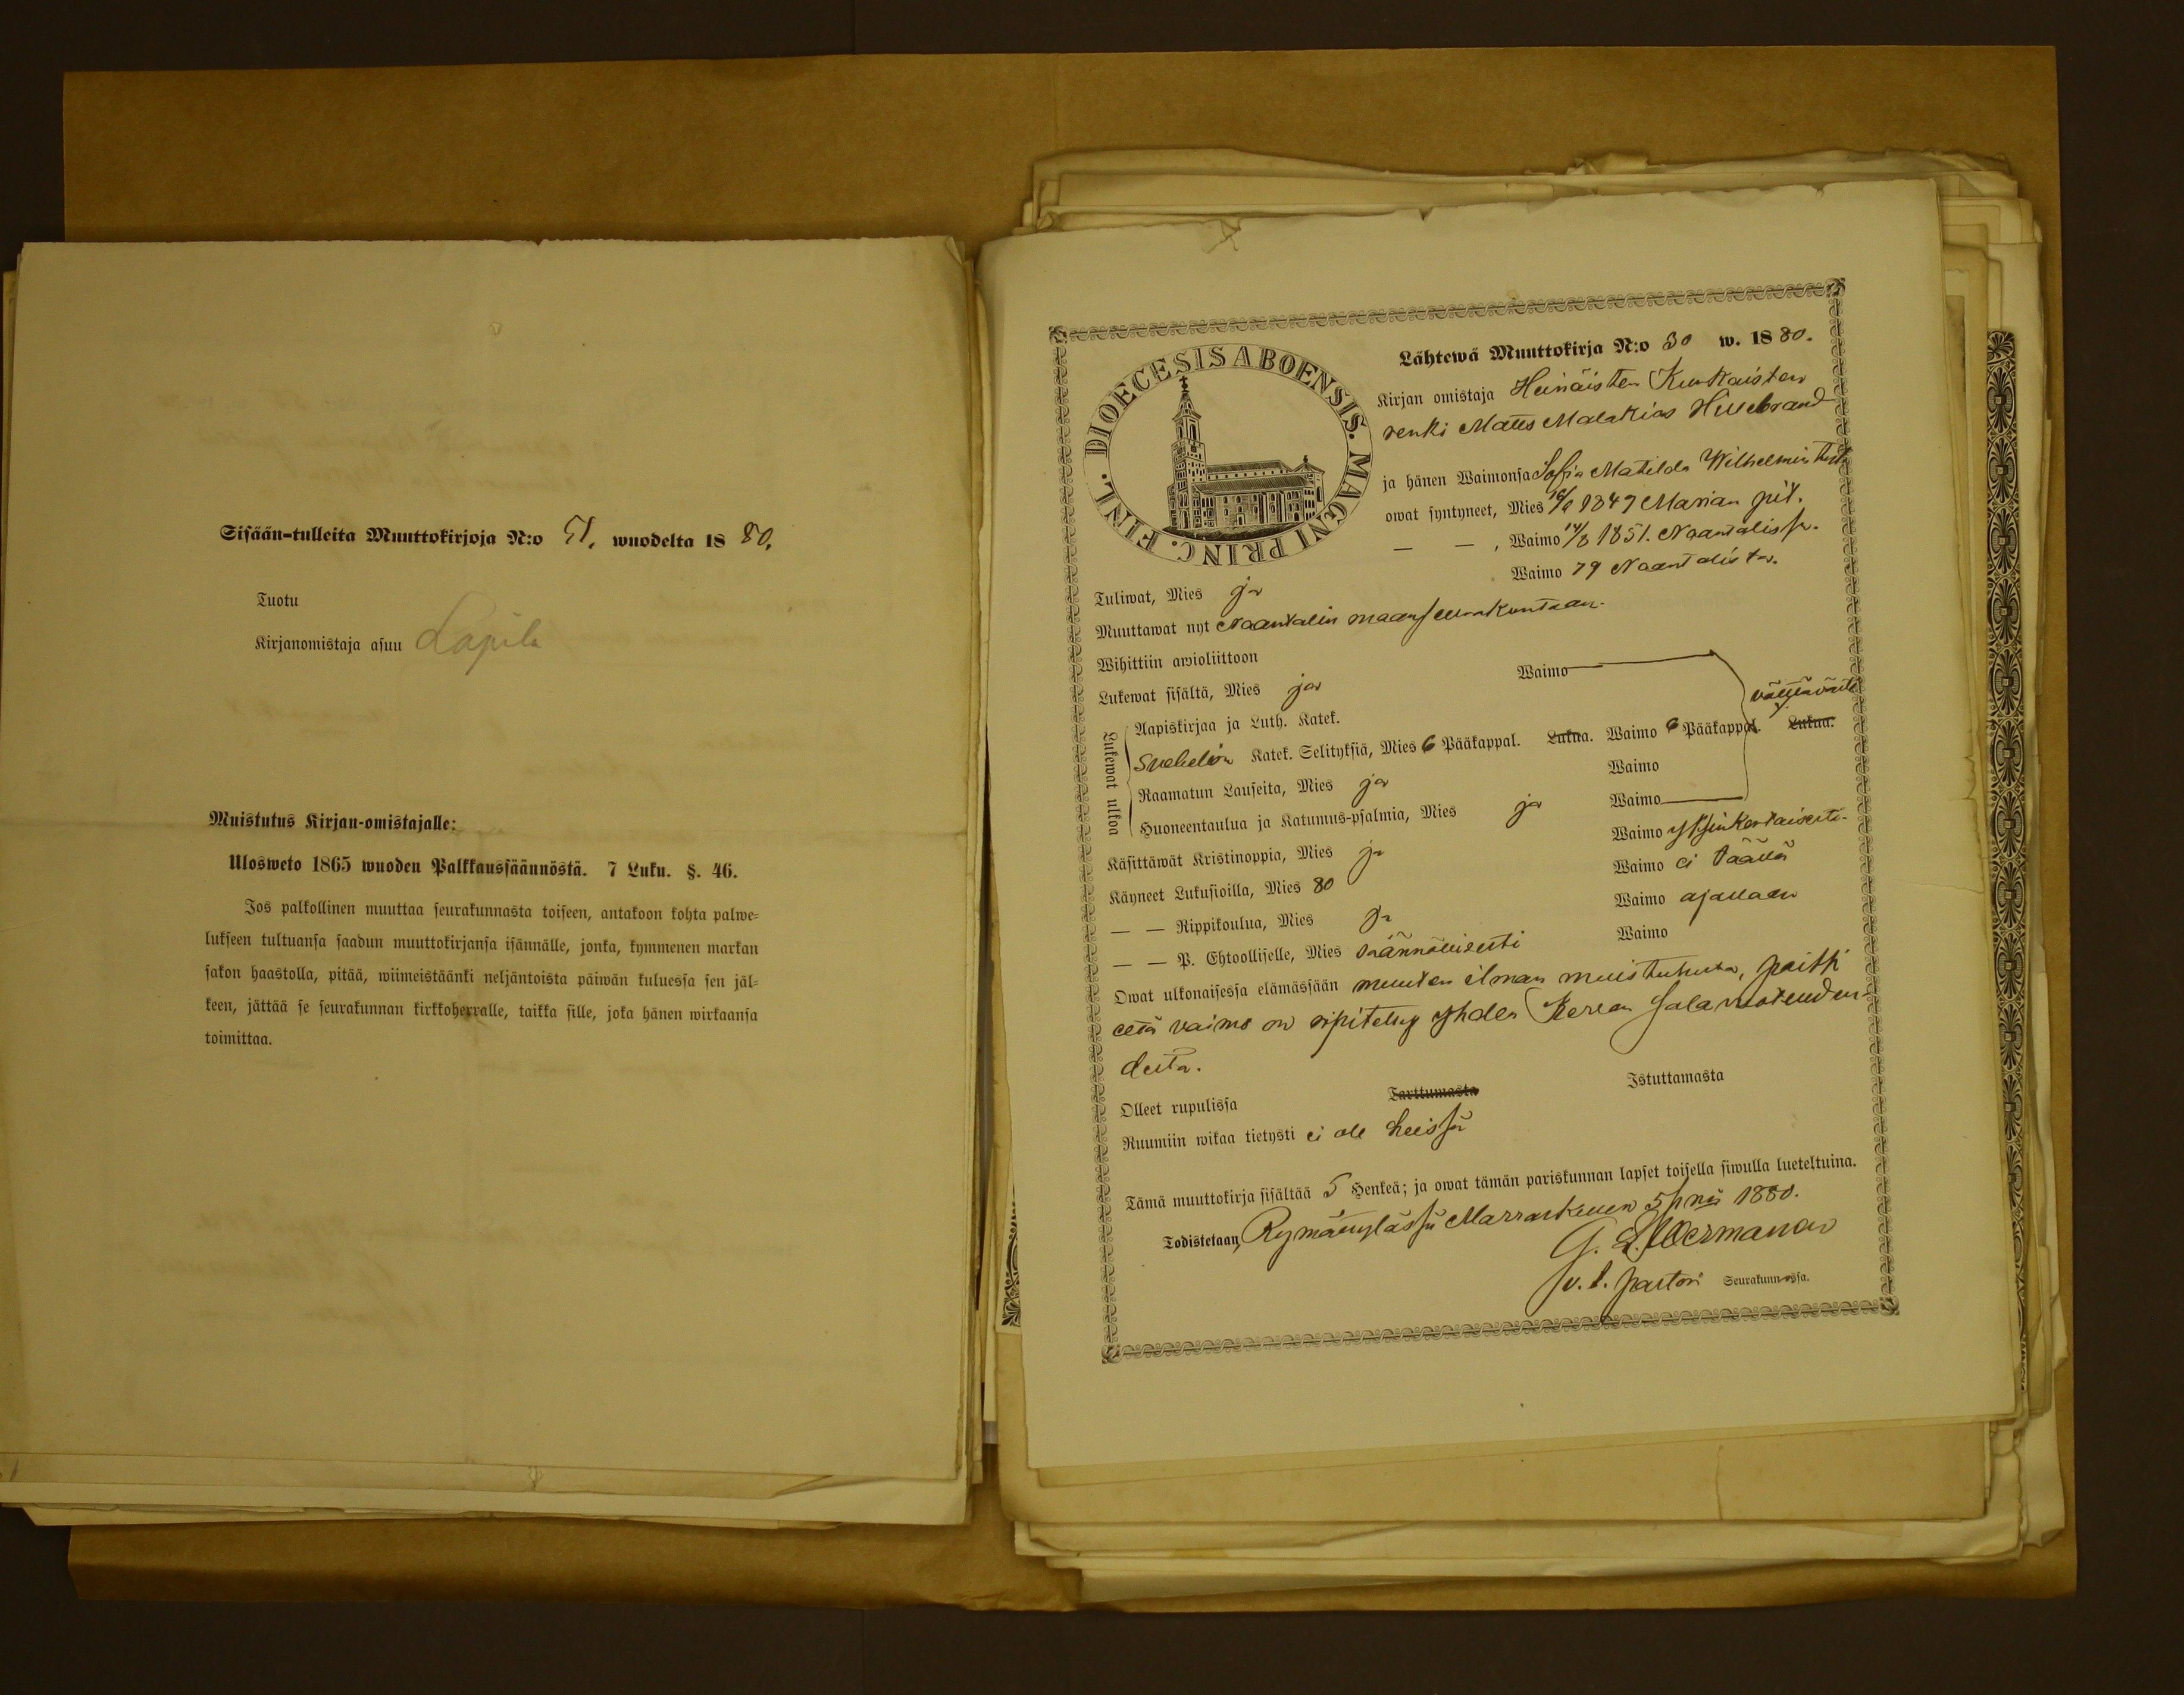 Sisään-tulleita Muuttokirjoja N:o 51. wuodelta 18 80.
Tuotu
Kirjanomistaja asuu Lapila
Muistutus Kirjan-omistajalle:
Ulosweto 1865 wuoden Palkkaussäännöstä. 7 Luku. §. 46.
Jos palkollinen muuttaa seurakunnasta toiseen, antakoon kohta palwe=
lukseen tultuansa saadun muuttokirjansa isännälle, jonka, kymmenen markan
sakon haastolla, pitää, wiimeistäänki neljäntoista päiwän kuluessa sen jäl=
keen, jättää se seurakunnan kirkkoherralle, taikka sille, joka hänen wirkaansa
toimittaa.
DIOECESIS ABOENSIS. MAGNI PRINC. FINL.
Lähtewä Muuttokirja N:o 30 w. 18 80.
Kirjan omistaja Heinäisten Kunkaisten
renki Matts Malakias Hillebrand
ja hänen Waimonsa Sofia Matilda Wilhelmintytär
owat syntyneet, Mies 1847 Marian pit.
— — , Waimo 14/3 1851. Naantalissa.
Tuliwat, Mies ja Waimo 79 Naantalista.
Muuttawat nyt Naantalin maaseurakuntaan.
Wihittiin awioliittoon
Lukewat sisältä, Mies ja Waimo
välttävästi
Lukewat ulkoa
Aapiskirjaa ja Luth. Katek.
Svebelion Katek. Selityksiä, Mies 6 Pääkappal. Lukua. Waimo 6 Pääkappal. Lukua.
Raamatun Lauseita, Mies ja Waimo
Huoneentaulua ja Katumus-psalmia, Mies ja Waimo
Käsittäwät Kristinoppia, Mies ja Waimo yksinkertaisesti.
Käyneet Lukusioilla, Mies 80 Waimo ei täällä
— — Rippikoulua, Mies ja Waimo ajallaan
— — P. Ehtoolliselle, Mies säännöllisesti Waimo
Owat ulkonaisessa elämässään muuten ilman muistutusta, paitsi
että vaimo on ripitetty yhden kerran salavuoteuden-
desta.
Olleet rupulissa Tarttumasta Istuttamasta
Ruumiin wikaa tietysti ei ole heissä
Tämä muuttokirja sisältää 5 Henkeä; ja owat tämän pariskunnan lapset toisella siwulla lueteltuina.
Todistetaan, Rymättylässä Marraskuun 5 p nä 1880.
G. L. Wermanen
v. t. pastori Seurakunnassa.